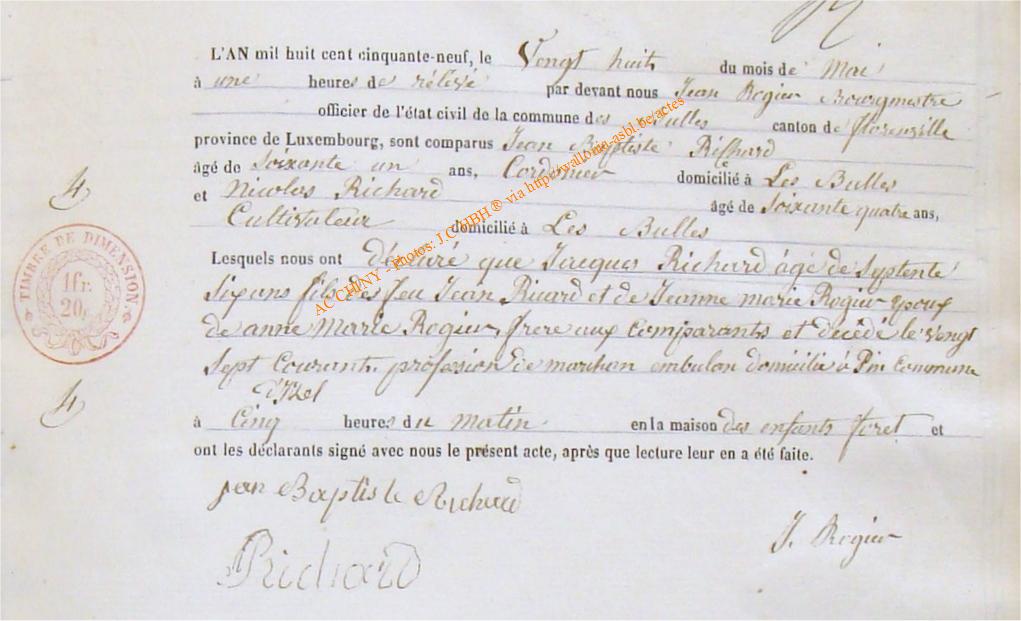 L'AN mil huit cent cinquante-neuf, le Vengt huit du mois de Mai
à une heures de rélevé par devant nous Jean Rogier Bourgmestre
officier de l'état civil de la commune des Bulles canton de florenville
province de Luxembourg, sont comparus Jean Baptiste Richard
âgé de Soixante un ans, Cordonier domicilié à Les Bulles
et Nicolas Richard âgé de Soixante quatre ans,
Cultivateur domicilié à Les Bulles
Lesquels nous ont déclaré que Jacques Richard âgé de Septente
six ans fils des feu Jean Ricard et de Jeanne marie Rogier epoux
de anne Marie Rogier, frere aux Comparants et décédé le vengt
sept Courant. profession de marchan embulan domicilié à Pin Commune
d'Izel
à Cinq heures du matin en la maison des enfants foret et
ont les déclarants signé avec nous le présent acte, après que lecture leur en a été faite.
jean Baptiste Richard
J. Rogier
Richard
4
TIMBRE DE DIMENSION.
1fr.
20c
4
ACCHINY - Photos: J.C. HBH ® via http://wallonia-asbl.be/actes